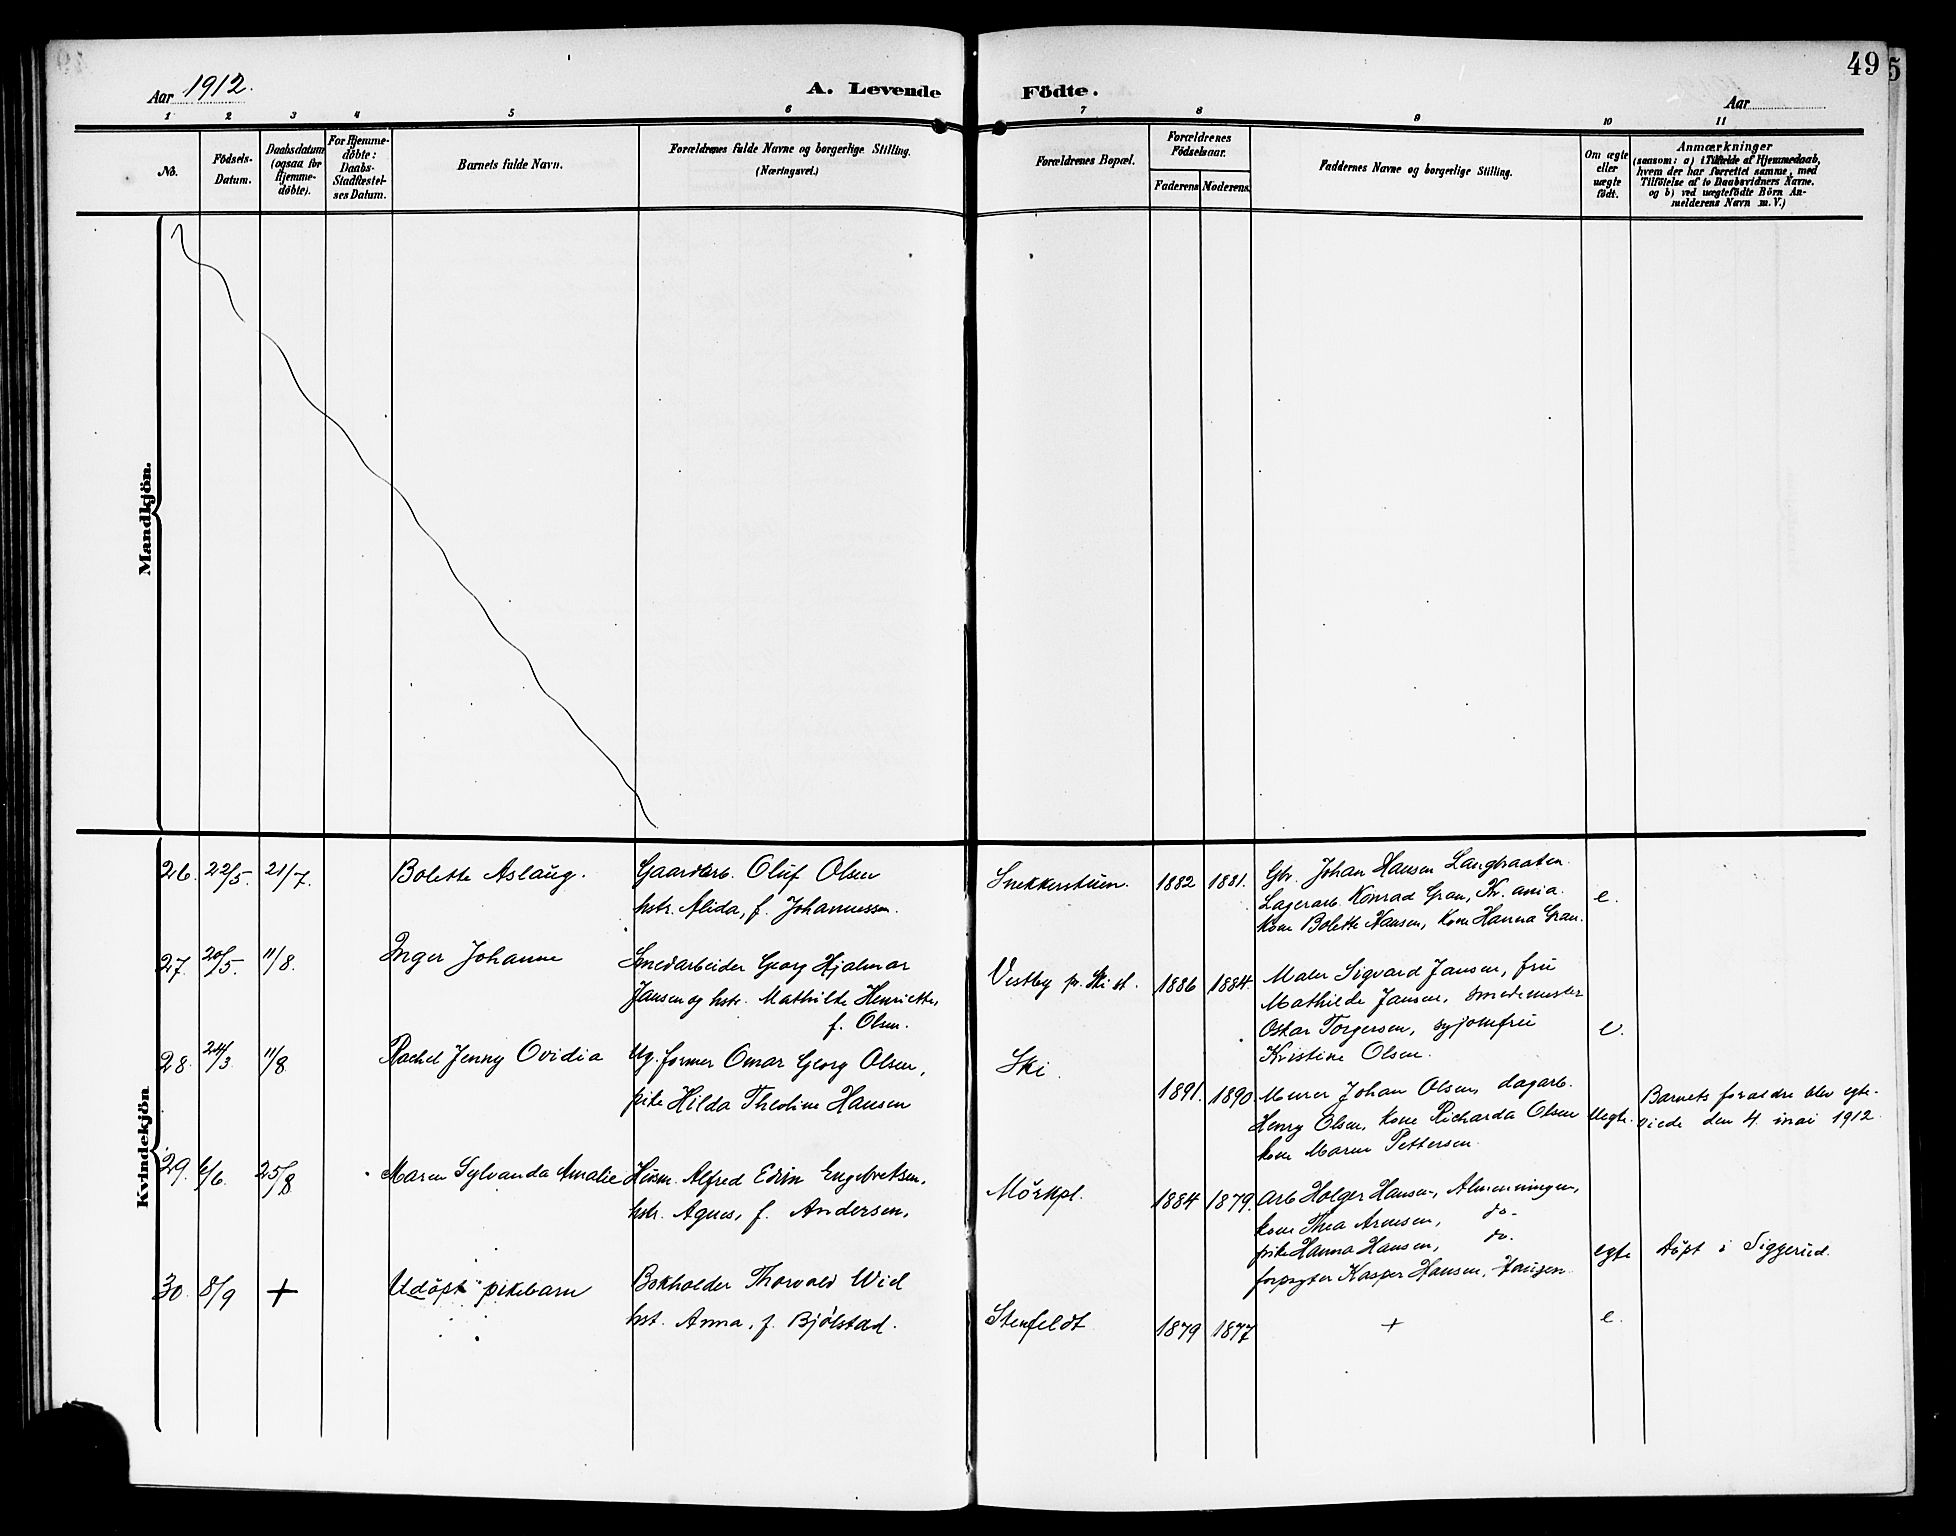 49
5
Aar 1912.
A. Levende Födte.
Aar
1 2 3 4 5 6 7 8 9 10 11
No.
Födsels-
Datum.
Daabsdatum
(ogsaa for
Hjemme-
döbte).
For Hjemme-
döbte:
Daabs-
Stadfæstel-
ses Datum.
Barnets fulde Navn.
Forældrenes fulde Navne og borgerlige Stilling.
(Næringsvei.)
Forældrenes Bopæl.
Forældrenes
Födselsaar.
Faderens Moderens.
Faddernes Navne og borgerlige Stilling.
Om ægte
eller
uægte
födt.
Anmærkninger
(saasom: a) i Tilfælde af Hjemmedaab,
hvem der har forrettet samme, med
Tilföielse af to Daabsvidners Navne.
og b) ved uægtefödte Börn An-
melderens Navn m. V.)
Mandkjön.
Kvindekjön
26. 22/5. 21/7. Bolette Aslaug. Gaardarb. Oluf Olsen
hstr. Alida, f. Johannessen.
Snekkerstuen. 1882 1881.
Gbr. Johan Hansen Langbraaten.
Lagerarb. Konrad Gran, Kr.ania.
Kone Bolette Hansen, Kone Hanna Gran.
e.
27. 20/5. 11/8. Inger Johanne Smedarbeider Georg Hjalmar
Jansen og hstr. Mathilde Henriette,
f. Olsen.
Vestby pr. Ski st. 1886 1884.
Maler Sigvard Jansen, fru
Mathilde Jansen, smedmester
Oskar Torgersen, syjomfru
Kristine Olsen.
e.
28. 24/3 11/8 Rachel Jenny Ovidia Ug. former Omar Georg Olsen,
pike Hilda Theoline Hansen
Ski. 1891. 1890.
Murer Johan Olsen, dagarb.
Henry Olsen, kone Richarda Olsen
kone Maren Pettersen.
Uegte.
Barnets foraldre blev egte-
viede den 4. mai 1912.
29. 6/6. 25/8 Maren Sylvanda Amalie Husm. Alfred Edvin Engebretsen,
hstr. Agnes, f. Andersen.
Mörkpl. 1884 1879.
Arb Holger Hansen, Almenningen,
kone Thea Arnesen, do.
pike Hanna Hansen, do.
forpagter Kasper Hansen, Haugen.
egte
Döpt i Siggerud.
30. 8/9 + Udöpt pikebarn Bokholder Thorvald Wiel
hst. Anna, f. Bjölstad.
Stenfeldt 1879 1877
+
e.